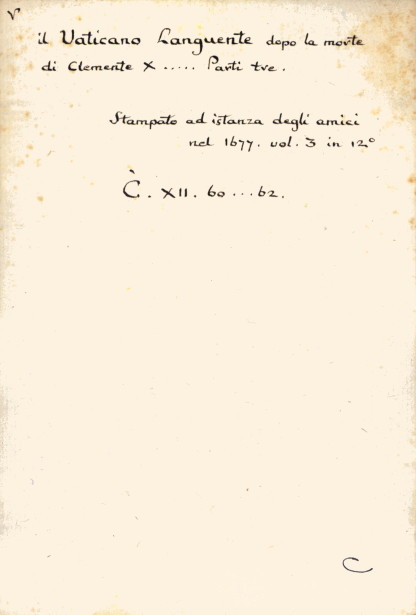 V
il Vaticano Languente dopo la morte
di Clemente X ..... Parti tre.
Stampato ad istanza degli amici
nel 1677. vol. 3 in 12°
Ċ. XII. 60 ... 62.
C